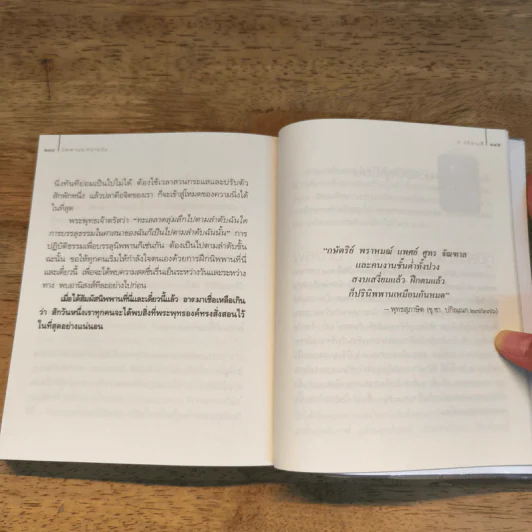 นิ่งทันทีย่อมเป็นไปไม่ได้ ต้องใช้เวลาสวนกระแสและปรับตัว
สักพักหนึ่ง แล้วปลาคือจิตของเรา ก็จะเข้าสู่โหมดของความนิ่งได้
ในที่สุด
พระพุทธเจ้าตรัสว่า "ทะเลลาดลุ่มลึกไปตามลำดับฉันใด
การบรรลุธรรมในศาสนาของฉันก็เป็นไปตามลำดับฉันนั้น" การ
ปฏิบัติธรรมเพื่อบรรลุนิพพานก็เช่นกัน ต้องเป็นไปตามลำดับขั้น
ฉะนั้น ขอให้ทุกคนเริ่มให้กำลังใจตนเองด้วยการฝึกนิพพานที่นี่
และเดี๋ยวนี้ เพื่อจะได้พบความสดชื่นรื่นเย็นระหว่างวันและระหว่าง
ทาง พบอานิสงส์ทีละอย่างไปก่อน
เมื่อได้สัมผัสนิพพานที่นี่และเดี๋ยวนี้แล้ว อาตมาเชื่อเหลือเกิน
ว่า สักวันหนึ่งเราทุกคนจะได้พบสิ่งที่พระพุทธองค์ทรงสั่งสอนไว้
ในที่สุดอย่างแน่นอน
"กษัตริย์ พราหมณ์ แพศย์ ศูทร จัณฑาล
และคนงานชั้นต่ำทั้งปวง
สงบเสงี่ยมแล้ว ฝึกตนแล้ว
ก็ปรินิพพานเหมือนกันหมด"
– พุทธสุภาษิต (ขุ.ชา.